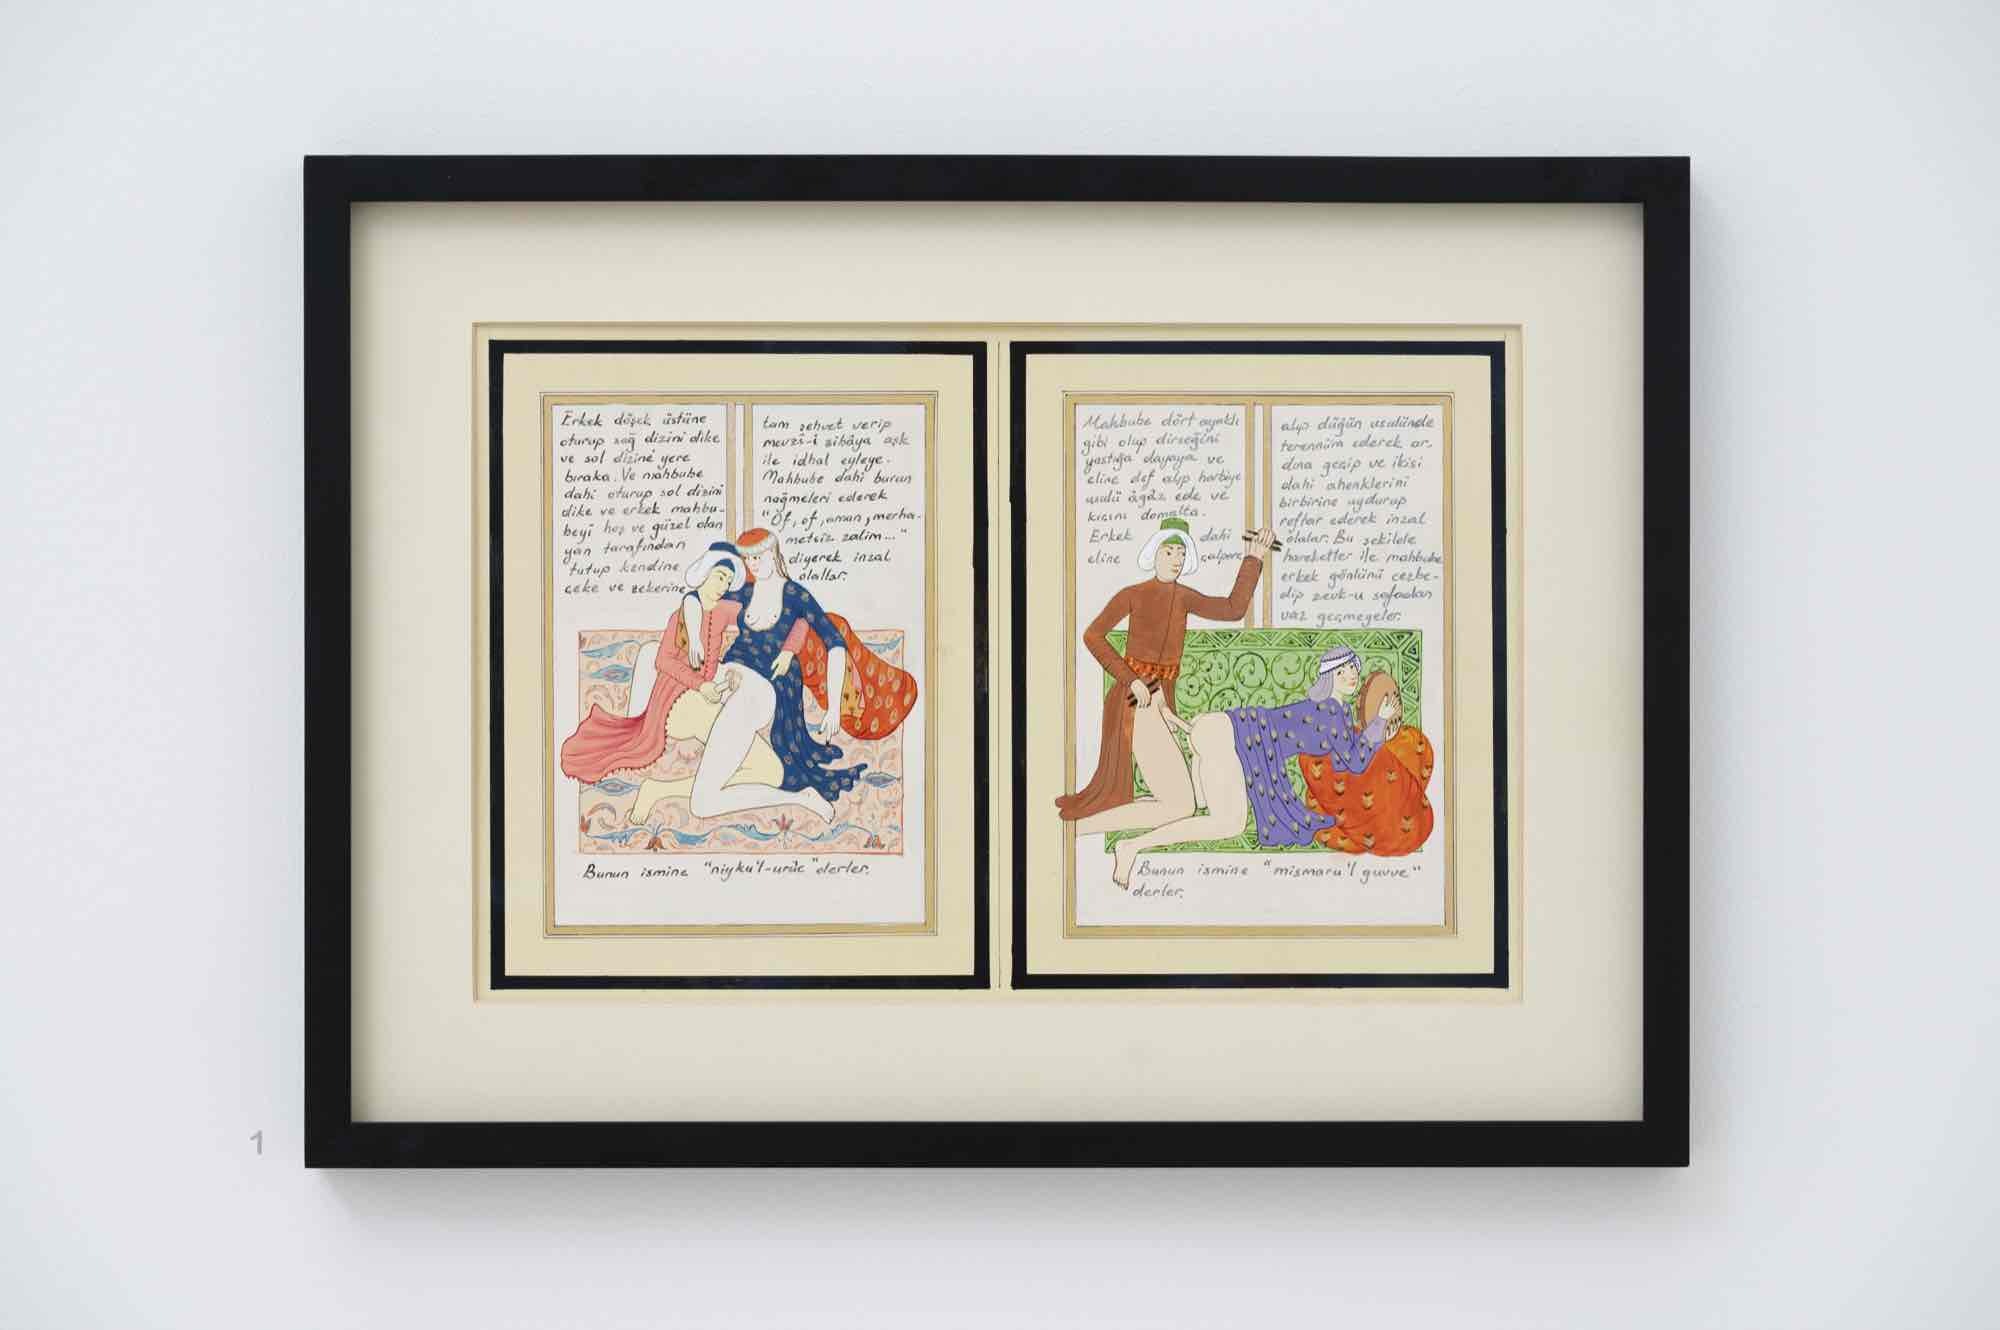 Erkek döşek üstüne
oturup sağ dizini dike
ve sol dizine yere
bıraka. Ve mahbube
dahi oturup sol dizini
dike ve erkek mahbu-
beyi hoş ve güzel olan
yan tarafından
tutup kendine
çeke ve zekerine
tam şehvet verip
mevzi-i zibâya aşk
ile idhal eyleye.
Mahbube dahi burun
nağmeleri ederek
"Öf, of, aman, merha-
metsiz zalim..."
diyerek inzal
olallar.
Bunun ismine "niyku'l-urûc" derler.
Mahbube dört ayaklı
gibi olup dirseğini
yastığa dayaya ve
eline def alıp harbiye
usulü âgâz ede ve
kıçını domalta.
Erkek dahi
eline çalpare
alıp düğün usulünde
terennüm ederek ar-
dına geçip ve ikisi
dahi ahenklerini
birbirine uydurup
reftar ederek inzal
olalar. Bu şekilde
hareketler ile mahbube
erkek gönlünü cezbe-
dip zevk-u safadan
vaz geçmeyeler.
Bunun ismine "mismaru'l guvve"
derler.
1